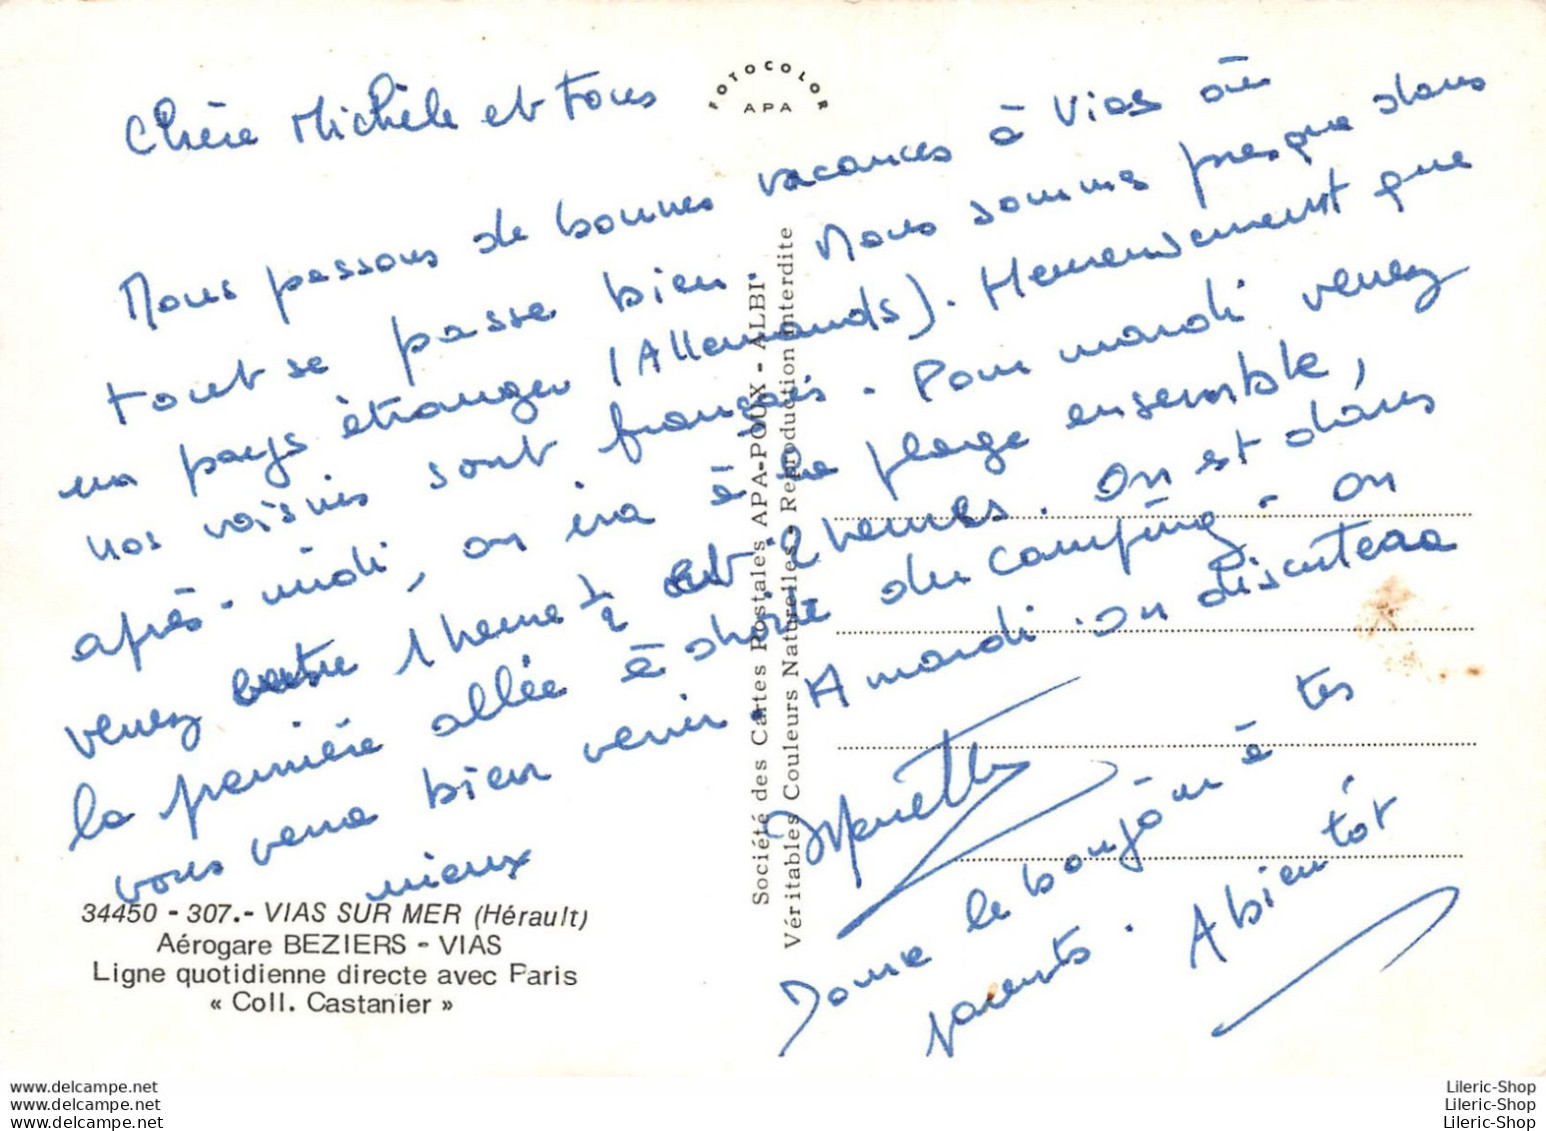 FOTOCOLOR
APA
Chère Michèle et tous
Nous passons de bonnes vacances à Vias où
tout se passe bien. Nous sommes presque dans
un pays étranger (Allemands). Heureusement que
nos voisins sont français. Pour mardi venez
après-midi, on ira à la plage ensemble,
venez entre 1 heure 1/2 et 2 heures. On est dans
la première allée à droite du camping. on
vous verra bien venir. A mardi on discutera
mieux
Donne le bonjour à tes
parents. A bientôt
Société des Cartes Postales APA-POUX - ALBI
Véritables Couleurs Naturelles - Reproduction Interdite
34450 - 307.- VIAS SUR MER (Hérault)
Aérogare BEZIERS - VIAS
Ligne quotidienne directe avec Paris
« Coll. Castanier »
www.delcampe.net
www.delcampe.net
www.delcampe.net
Lileric-Shop
Lileric-Shop
Lileric-Shop